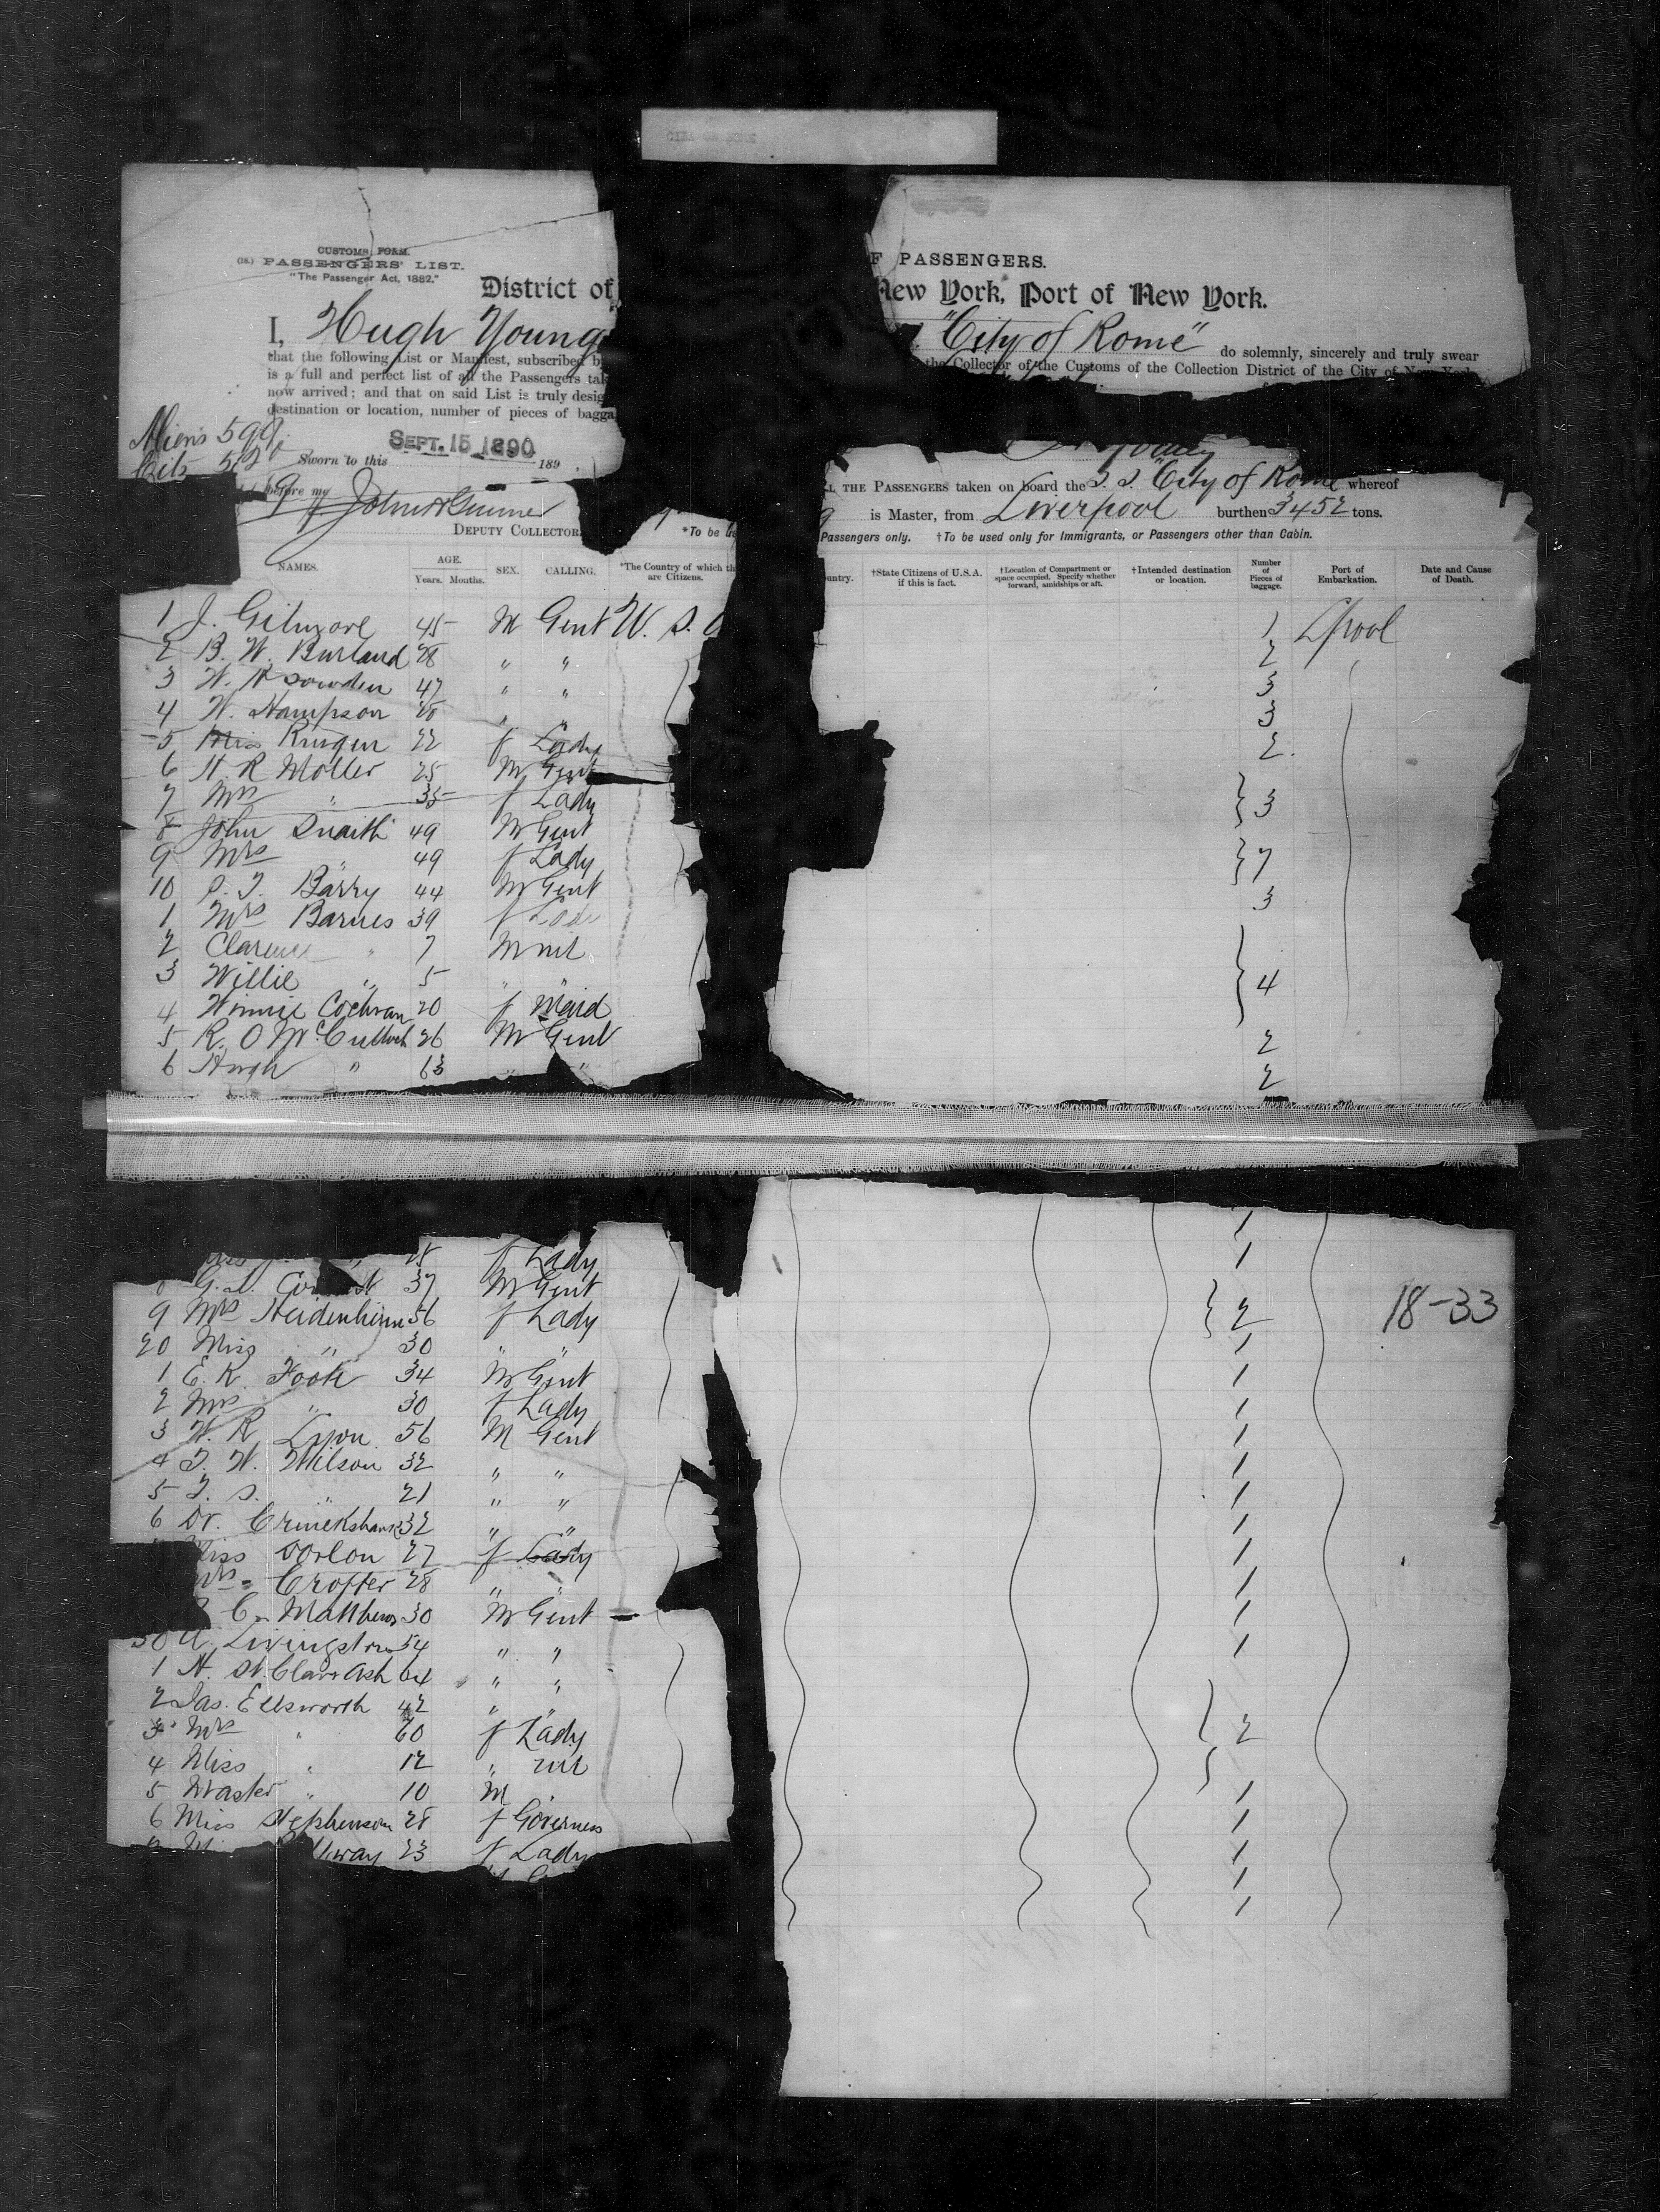 CITY OF ROME
CUSTOMS FORM.
PASSENGERS' LIST.
"The Passenger Act, 1882."
F PASSENGERS.
District of New York, Port of New York.
I, Hugh Young "City of Rome" do solemnly, sincerely and truly swear
that the following List or Manifest, subscribed b the Collector of the Customs of the Collection District of the City of New York
is a full and perfect list of all the Passengers tak
now arrived; and that on said List is truly desig
destination or location, number of pieces of bagga
Aliens 599
SEPT. 15 1890
Sworn to this 189
before me
DEPUTY COLLECTOR.
THE PASSENGERS taken on board the S.S. "City of Rome whereof
is Master, from Liverpool burthen 3452 tons.
*To be Passengers only. †To be used only for Immigrants, or Passengers other than Cabin.
NAMES. AGE. Years. Months. SEX. CALLING. *The Country of which th are Citizens. untry. †State Citizens of U.S.A. if this is fact. †Location of Compartment or space occupied. Specify whether forward, amidships or aft. †Intended destination or location. Number of Pieces of baggage. Port of Embarkation. Date and Cause of Death.
1 J. Gilmore 45 M Gent U. S. 1 Lpool
2 B. W. Burland 28 " " 2
3 W. H. Sowden 47 " " 3
4 W. Hampson " " 3
5 Miss Kruger 22 f Lady 2
6 H. R Moller 25 M Gent
7 Mrs " 35 f Lady 3
8 John Snaith 49 M Gent
9 Mrs " 49 f Lady 7
10 P. J. Barry 44 M Gent 3
1 Mrs Barnes 39 f Lady
2 Clarence " 7 M nil
3 Willie " 5 " " 4
4 Winnie Cochran 20 f Maid
5 R. O McCulloch 26 M Gent 2
6 Hugh " 63 " " 2
f Lady 1
G. 37 M Gent 1
9 Mrs Heidenheim 56 f Lady 2
20 Miss " 30 " "
1 E. R. Foote 34 M Gent 1
2 Mrs " 30 f Lady 1
3 W. R Lyon 56 M Gent 1
4 T. W. Wilson 32 " " 1
5 T. S. " 21 " " 1
6 Dr. Cruickshank 32 " " 1
Miss Dorlon 27 f Lady 1
Mrs Crofter 28 " " 1
C. Matthews 30 M Gent 1
30 A. Livingston 54 " " 1
1 H. St. Clair Ash 64 " "
2 Jas. Ellsworth 42 " "
3 Mrs " 60 f Lady 2
4 Miss " 12 " nil
5 Master " 10 M 1
6 Miss Stephenson 28 f Governess 1
way 23 f Lady 1
1
1
18-33